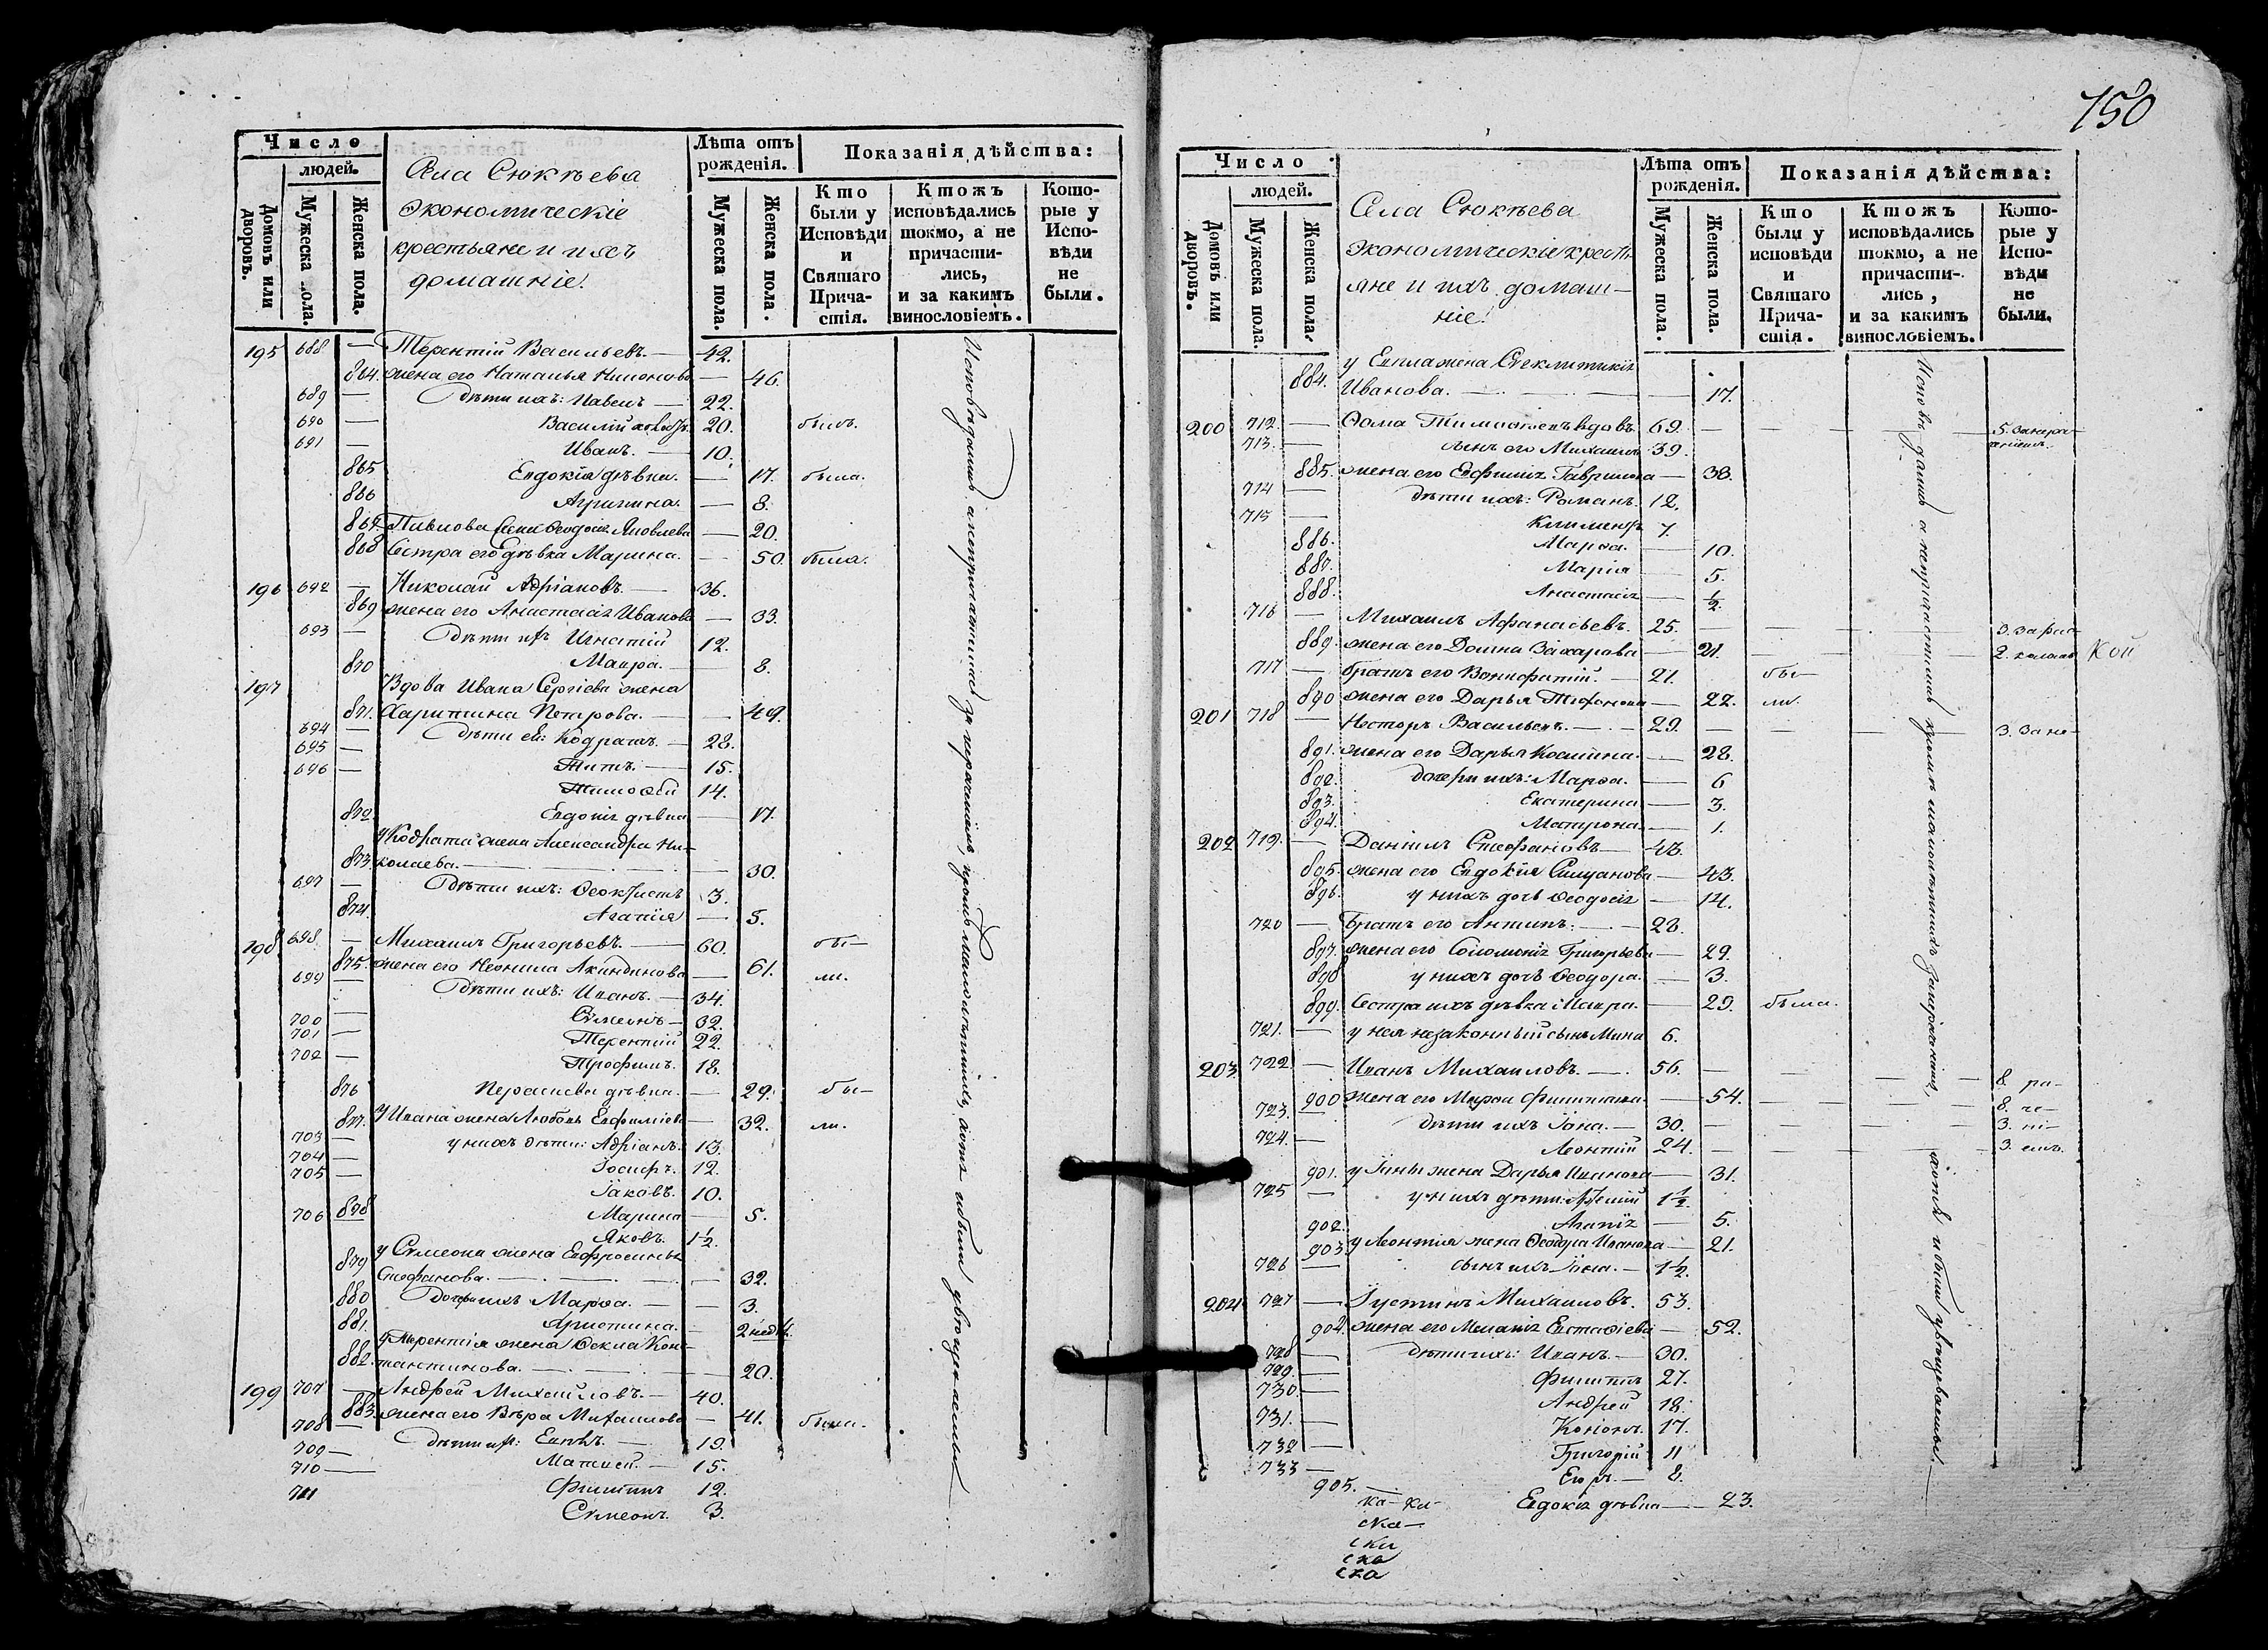 Число
людей.
Домовъ или дворовъ.
Мужеска пола.
Женска пола.
Села Сюкѣева
экономическіе
крестьяне и ихъ
домашніе.
Лѣта отъ рожденія.
Мужеска пола.
Женска пола.
Показанія дѣйства:
Кто были у Исповѣди и Святаго Прича-стія.
Ктожъ исповѣдались токмо, а не причасти-лись, и за какимъ винословіемъ.
Кото-рые у Испо-вѣди не были.
195 688 — Терентій Васильевъ. — 42.
864. жена его Наталья — 46.
689 — дѣти ихъ: Павелъ — 22.
690 — Василій 20. былъ.
691 — Иванъ. — 10.
865 Евдокія дѣвка. — 17. была.
866 Агрипина. — 8.
867 Павлова жена Ѳеодосія Яковлева — 20.
868 Сестра его дѣвка Марина. — 50. была.
196 692 — Николай Адріановъ. — 36.
869 жена его Анастасія Иванова — 33.
693 — дѣти их Игнатій 12.
870 Мавра. — 8.
197 Вдова Ивана Сергіева жена
871. Харитина Петрова. — 49.
694 — дѣти ея: Кодратъ. — 28.
695 — Титъ. — 15.
696 — Тимоѳей 14.
872 Евдокія дѣвка — 17.
у Кодрата жена Александра Ни-
873. колаева. — 30.
697 — дѣти ихъ: Ѳеоктистъ 3.
874. Агапія — 5.
198 698 — Михаилъ Григорьевъ. — 60. бы-
875. жена его Неонила Акиндинова — 61. ли.
699 — дѣти ихъ: Иванъ. — 34.
700 — Сѵмеонъ — 32.
701 — Терентій 22.
702 — Трофимъ. 18.
876 дѣвка. — 29. бы-
877. У Ивана жена Любовь Евфиміева — 32. ли.
703 — у нихъ дѣти: Адріанъ. 13.
704 — Іосифъ. 12.
705 — Іаковъ. 10.
878 Марина — 5.
706 Яковъ. 1½.
у Сѵмеона жена Евфросинья
879 Стефанова. — 32.
880 дочери ихъ Марѳа. — 3.
881. Христина. — 2 нед.
у Терентія жена Ѳекла Кон-
882. стантинова. — 20.
199 707 — Андрей Михайловъ. — 40.
883. жена его Вѣра Михаилова — 41. была.
708 — дѣти их: Евплъ. — 19.
709 — Матвей. — 15.
710 — Филиппъ 12.
711 Сѵмеонъ. 3.
Исповѣдались а не причастились за нераченіемъ, кромѣ малолѣтнихъ,
150
Число
людей.
Домовъ или дворовъ.
Мужеска пола.
Женска пола.
Села Сюкѣева
экономическіе кресть-
яне и ихъ домаш-
ніе.
Лѣта отъ рожденія.
Мужеска пола.
Женска пола.
Показанія дѣйства:
Кто были у исповѣди и Святаго Прича-стія.
Ктожъ исповѣдались токмо, а не причасти-лись, и за какимъ винословіемъ.
Кото-рые у Испо-вѣди не были.
у Евпла жена Сѵнклитикія
884. Иванова. — 17.
200 712. — Ѳома вдовъ. 69.
713. — сынъ его Михаилъ 39.
885. жена его Евфимія Гаврилова — 38.
714 — дѣти ихъ: Романъ. 12.
715 — Климентъ 7.
886. Марѳа. — 10.
887. Марія — 5.
888. Анастасія — ½.
716 — Михаилъ Афанасьевъ. 25. 3. за рас-
889. жена его Домна Захарова — 21. 2. коломъ кой
717 — братъ его Вонифатій. — 21. бы-
890 жена его Дарья — 22. ли.
201 718 — Несторъ Васильевъ. — 29. 3. за не-
891. жена его Дарья Космина. — 28.
892. дочери ихъ: Марѳа. — 6
893. Екатерина. — 3.
894. Матрона. — 1.
202 719. — Даніилъ Стефановъ. — 43.
895. жена его Евдокія — 43.
896. у нихъ дочь Ѳеодосія — 14.
720 — Братъ его Антипъ. — 28.
897. жена его Соломонія Григорьева — 29.
898 у нихъ дочь Ѳеодора. — 3.
899. Сестра ихъ дѣвка Мавра. — 29. была.
721. — у нея незаконный сынъ Мина 6.
203. 722. — Иванъ Михаиловъ. — 56. 8. ра-
900 жена его Марѳа Филиппова — 54. 8. че-
723. — дѣти ихъ Іона. — 30. 3. ні-
724. — Леонтій 24. 3. емъ.
901. у Іоны жена Дарья Иванова — 31.
725 — у нихъ дѣти: 1½.
902. Агапія — 5.
903 у Леонтія жена Ѳеодора Иванова — 21.
726 — сынъ ихъ Іона. — 1½.
204 727 — Іустинъ Михаиловъ. 53.
904. жена его Меланія Евстафіева — 52.
728 — дѣти ихъ: Иванъ. — 30.
729. — Филиппъ 27.
730. — Андрей 18.
731. — Кононъ. 17.
732 — Григорій 11
733 — Егоръ. — 8.
905. — Евдокія дѣвка — 23.
ка-ка-
ска-
ска
ска
ска
Исповѣдались а не причастились кромѣ малолѣтнихъ